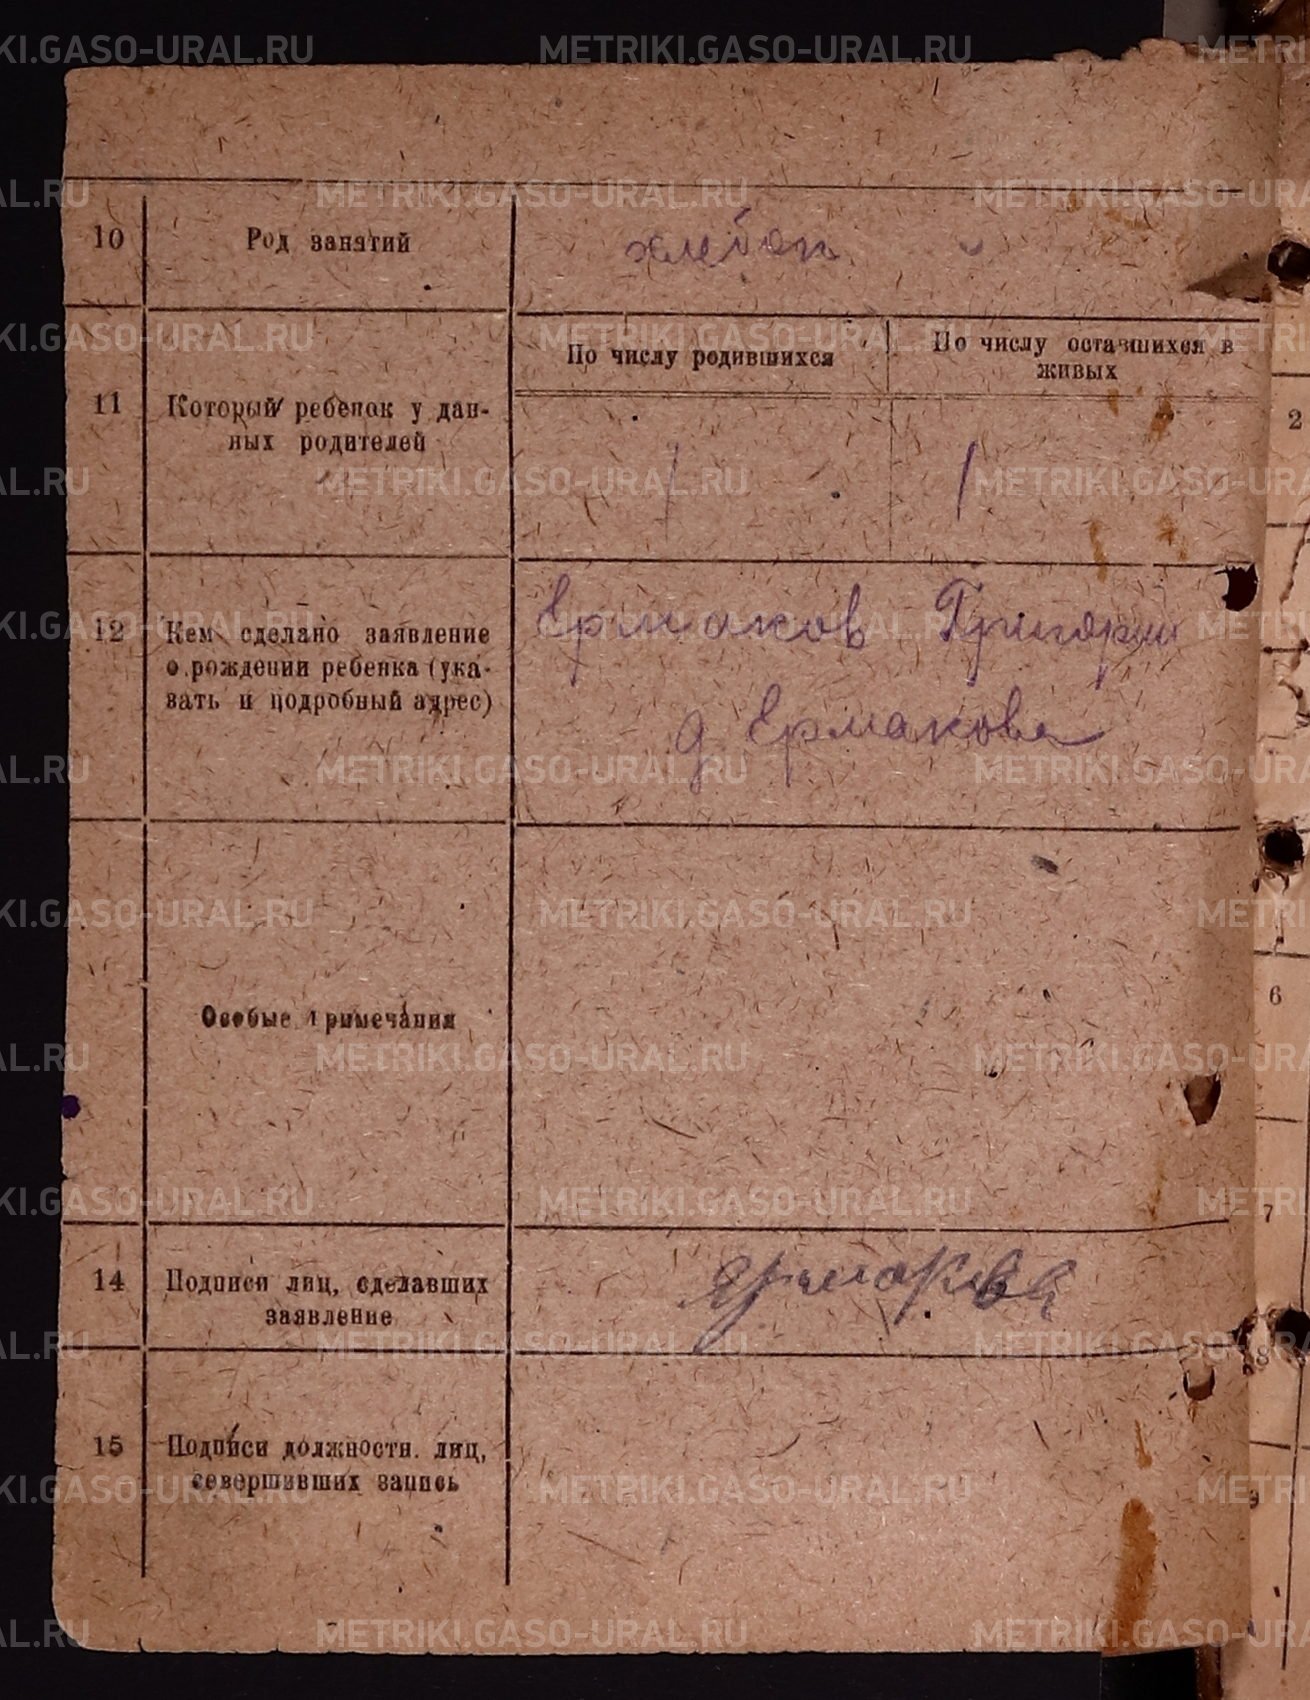 10 Род занятий хлебоп
По числу родившихся По числу оставшихся в
живых
11 Который ребенок у дан-
ных родителей
1 1
12 Кем сделано заявление
о рождении ребенка (ука-
зать и подробный адрес)
Ермаков Григорий
д Ермакова
Особые примечания
14 Подписи лиц, сделавших
заявление
15 Подписи должностн. лиц,
совершивших запись
2
6
7
8
9
METRIKI.GASO-URAL.RU